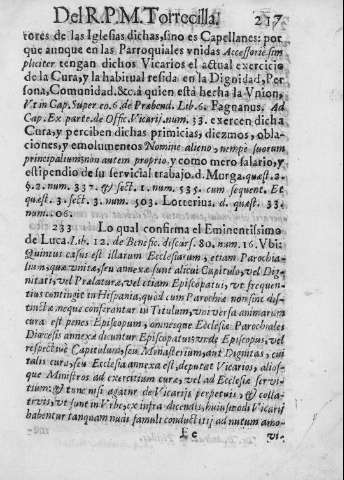 Del R.P.M. Torrecilla. 217
rores de las Iglesias dichas, sino es Capellanes: por
que aunque en las Parroquiales vnidas Accessorie sim
pliciter tengan dichos Vicarios el actual exercicio
de la Cura, y la habitual resida en la Dignidad, Per
sona, Comunidad. &c. à quien està hecha la Vnion,
Vt in Cap. Super eo. 6. de Præbend. Lib. 6. Pagnanus. Ad
Cap. Ex parte. de Offic. Vicarij. num. 33. exercen dicha
Cura, y perciben dichas primicias, diezmos, obla-
ciones, y emolumentos Nomine alieno, nempe suorum
principalium; non autem proprio, y como mero salario, y
estipendio de su servicial trabajo. d. Murga. quæst. 2.
§. 2. num. 337. & sect. 1. num. 535. cum sequent. Et
quæst. 3. sect. 3. num. 503. Lotterius. d. quæst. 33.
num. 06.
233 Lo qual confirma el Eminentissimo
de Luca. Lib. 12. de Benefic. discurs. 80. num. 16. Vbi:
Quintus casus est illarum Ecclesiarum, etiam Parochia-
lium, quæ vnitæ, seu annexæ sunt alicui Capitulo, vel Dig-
nitati, vel Prælaturæ, vel etiam Episcopatui, vt frequen-
tius contingit in Hispania, quòd cum Parochiæ non sint dis-
tinctæ neque conferantur in Titulum, vniversa animarum
cura est penes Episcopum, omnesque Ecclesiæ Parochiales
Diœcesis annexæ dicuntur Episcopatui: vnde Episcopus, vel
respectivè Capitulum, seu Monasterium, aut Dignitas, cui
talis cura, seu Ecclesia annexa est, deputat Vicarios, alios-
que Ministros ad exercitium curæ, vel ad Ecclesiæ servi-
tium: & tunc nisi agatur de Vicarijs perpetuis, & colla-
tivis, vt sunt in Vrbe, ex infra dicendis, huiusmodi Vicarij
habentur tanquam nudi famuli conductitij ad nutum amo-
Ee vi-